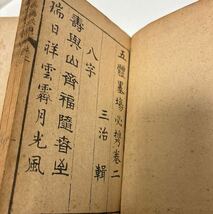 五體墨場必携卷二
三治 輯
八字
壽與山齊福隨春至
瑞日祥雲霽月光風